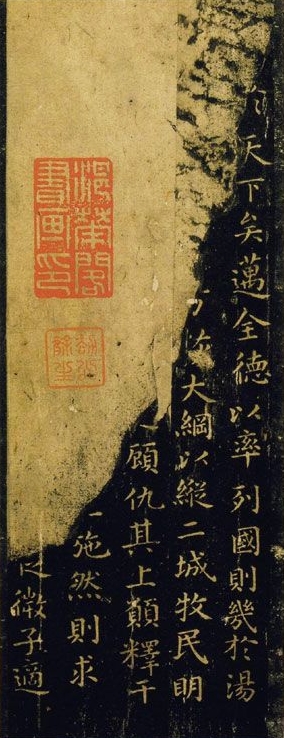 天下矣邁全德以率列國則幾於湯
大綱以縱二城牧民明
顧仇其上願釋干
施然則求
微子適
書畫印